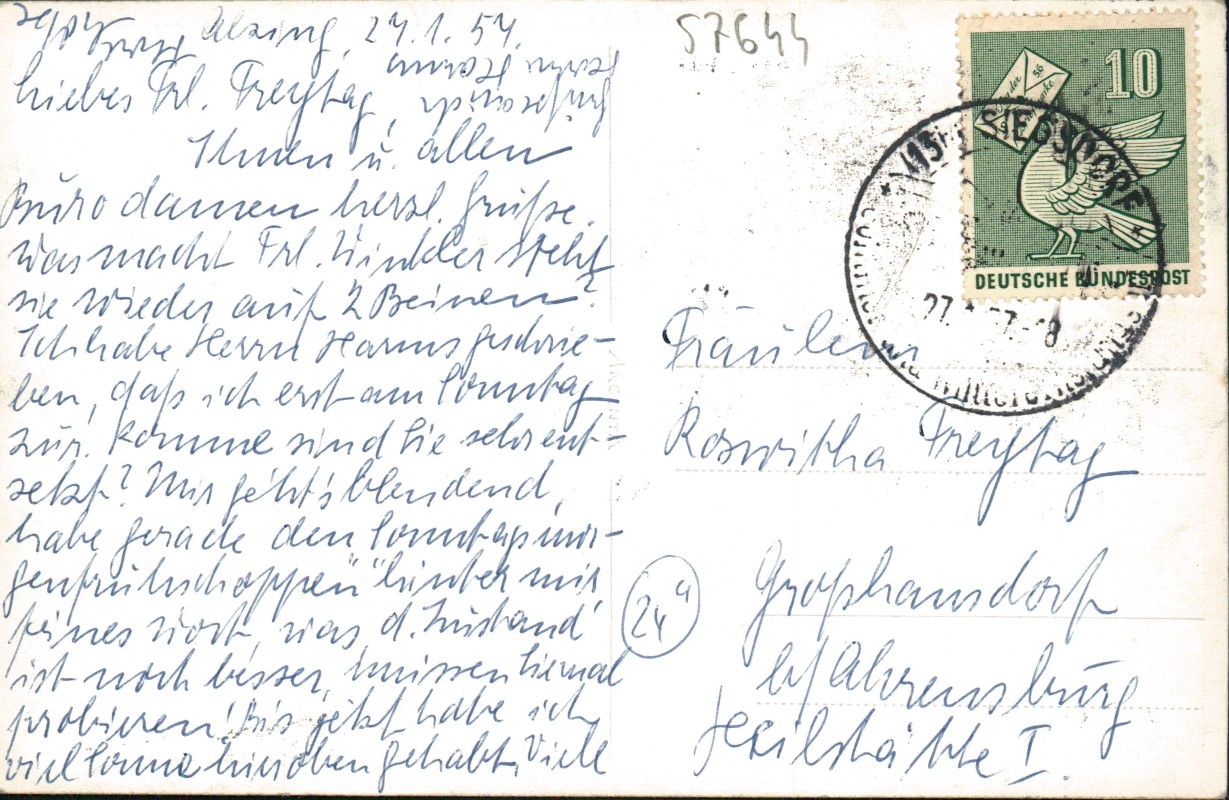 Alzing, 27.1.57.
Liebes Frl. Freytag,
Ihnen u. allen
Bürodamen herzl. Grüße.
Was macht Frl. Winkler steht
sie wieder auf 2 Beinen?
Ich habe Herrn Harms geschrie-
ben, daß ich erst am Sonntag
zur. komme sind Sie sehr ent-
setzt? Mir geht's blendend,
habe gerade den Sonntagsmor-
genfrühschoppen" hinter mir
feines Wort, was, d. Zustand
ist noch besser, müssen Sie mal
probieren! Bis jetzt habe ich
viel Sonne hier oben gehabt. Viele
57644
10
DEUTSCHE BUNDESPOST
SIEGSDORF
27. 57-18
Fräulein
Roswitha Freytag
24a
Großhansdorf
b/Ahrensburg
Heilstätte I.